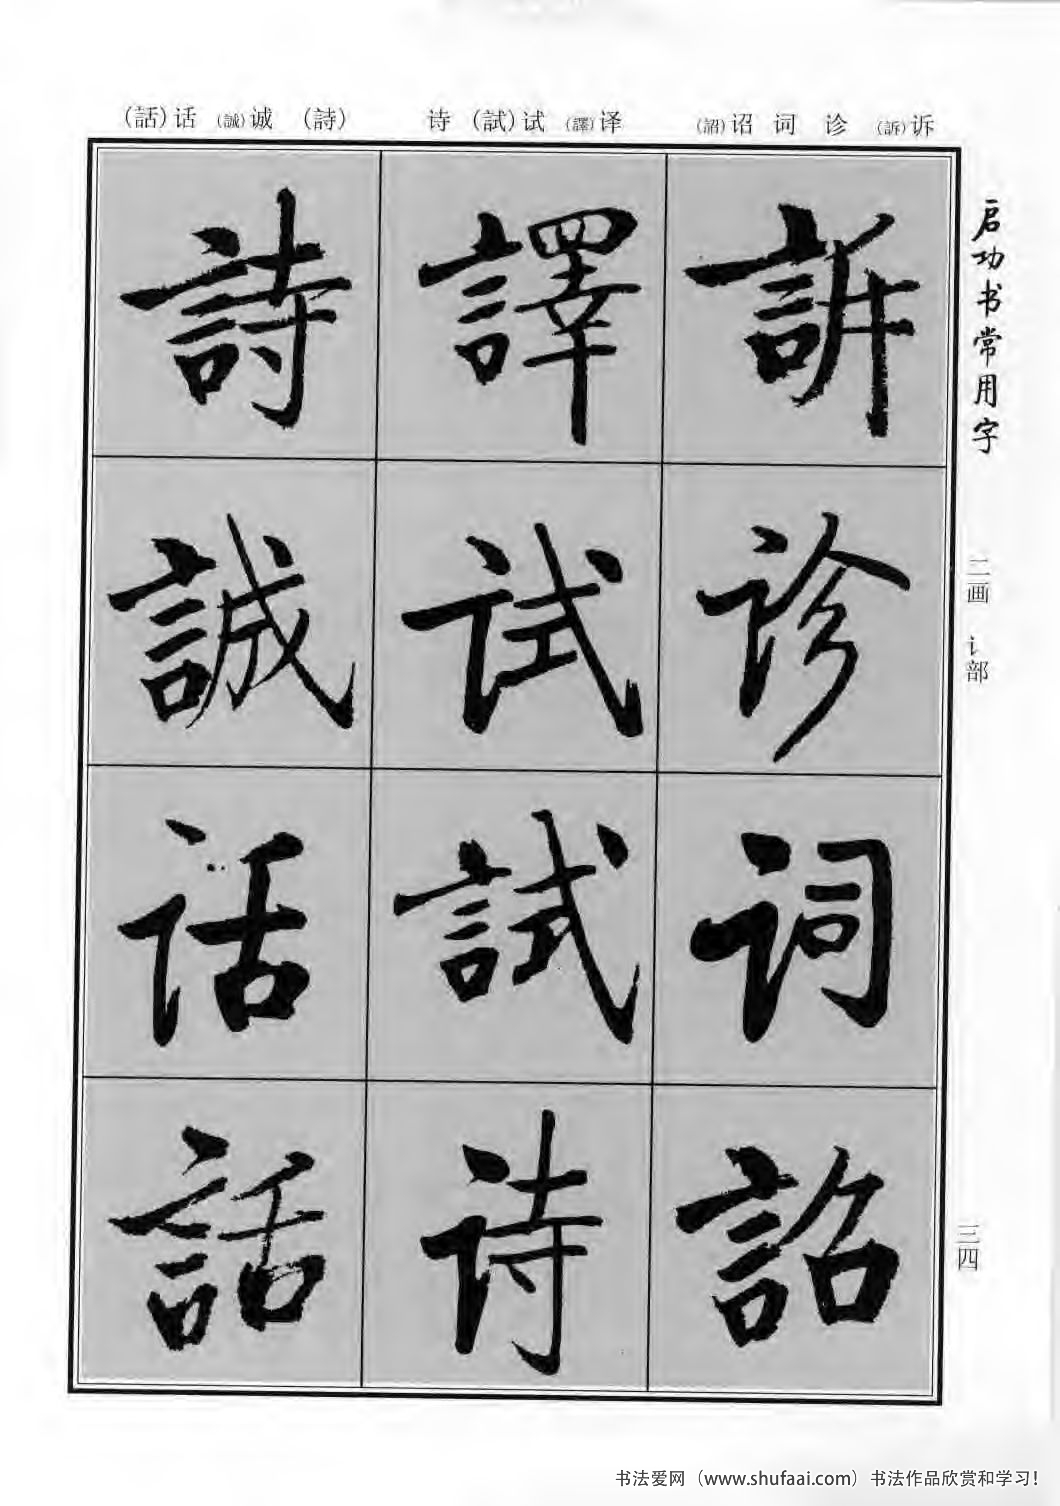 (話)话 (誠)诚 (詩) 诗 (試)试 (譯)译 (詔)诏 词 诊 (訴)诉
启功书常用字
二画 讠部
三四
訴
诊
词
詔
譯
试
試
诗
詩
誠
话
話
书法爱网（www.shufaai.com）书法作品欣赏和学习!